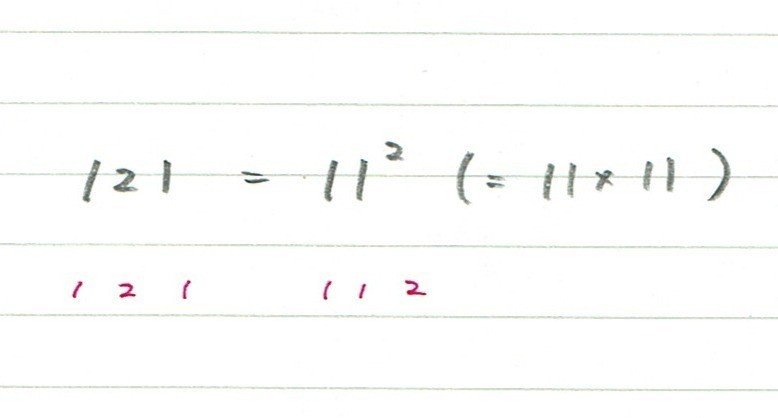 121 = 11² (= 11 × 11)
1 2 1 1 1 2